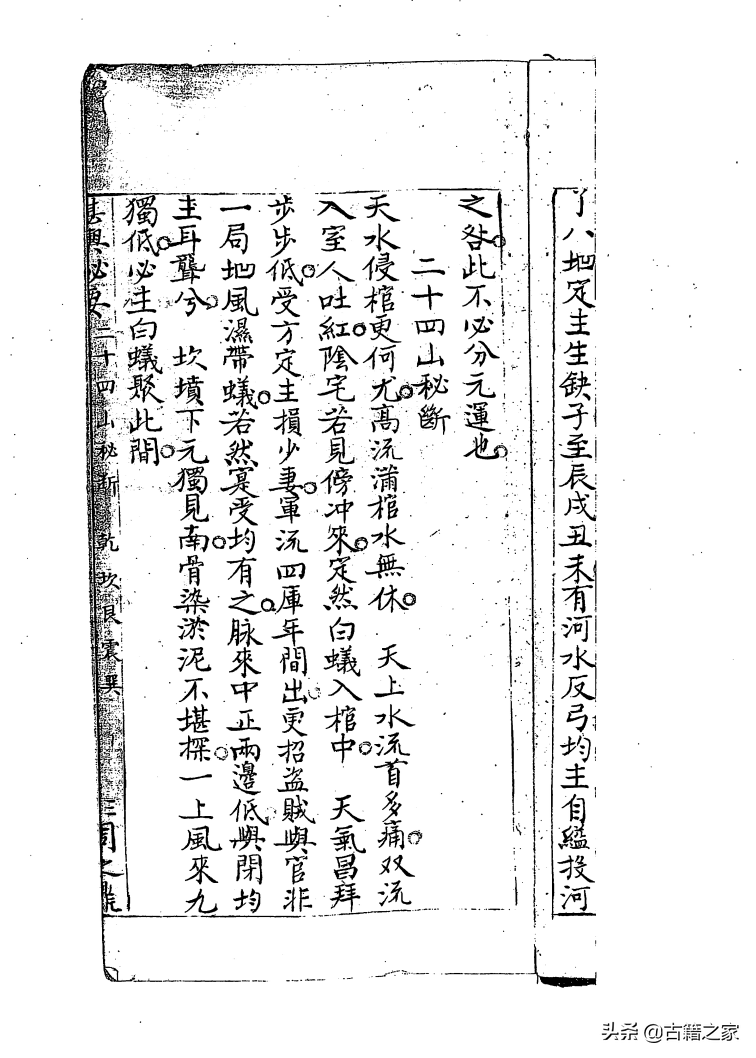 了八地定主生缺子至辰戌丑未有河水反弓均主自縊投河
之咎此不必分元運也
二十四山秘斷
天水侵棺更何尤高流滿棺水無休 天上水流首多痛双流
入室人吐紅陰宅若見傍冲來定然白蟻入棺中 天氣昌拜
步步低受方定主損少妻軍流四庫年間出更招盜賊與官非
一局地風濕帶蟻若然寔受均有之脉來中正兩邊低與閉均
主耳聾兮 坎墳下元獨見南骨染淤泥不堪探一上風來九
獨低必主白蟻聚此間
堪輿秘要 二十四山秘斷 乾坎艮震巽
头条 @古籍之家